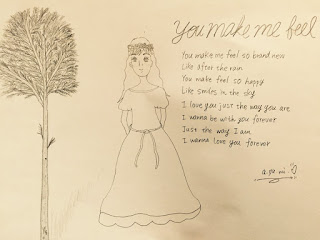 You make me feel
You make me feel so brand new
Like After the rain
You make feel so happy
Like smiles in the sky
I love you just the way you are
I wanna be with you forever
Just the way I am,
I wanna love you forever